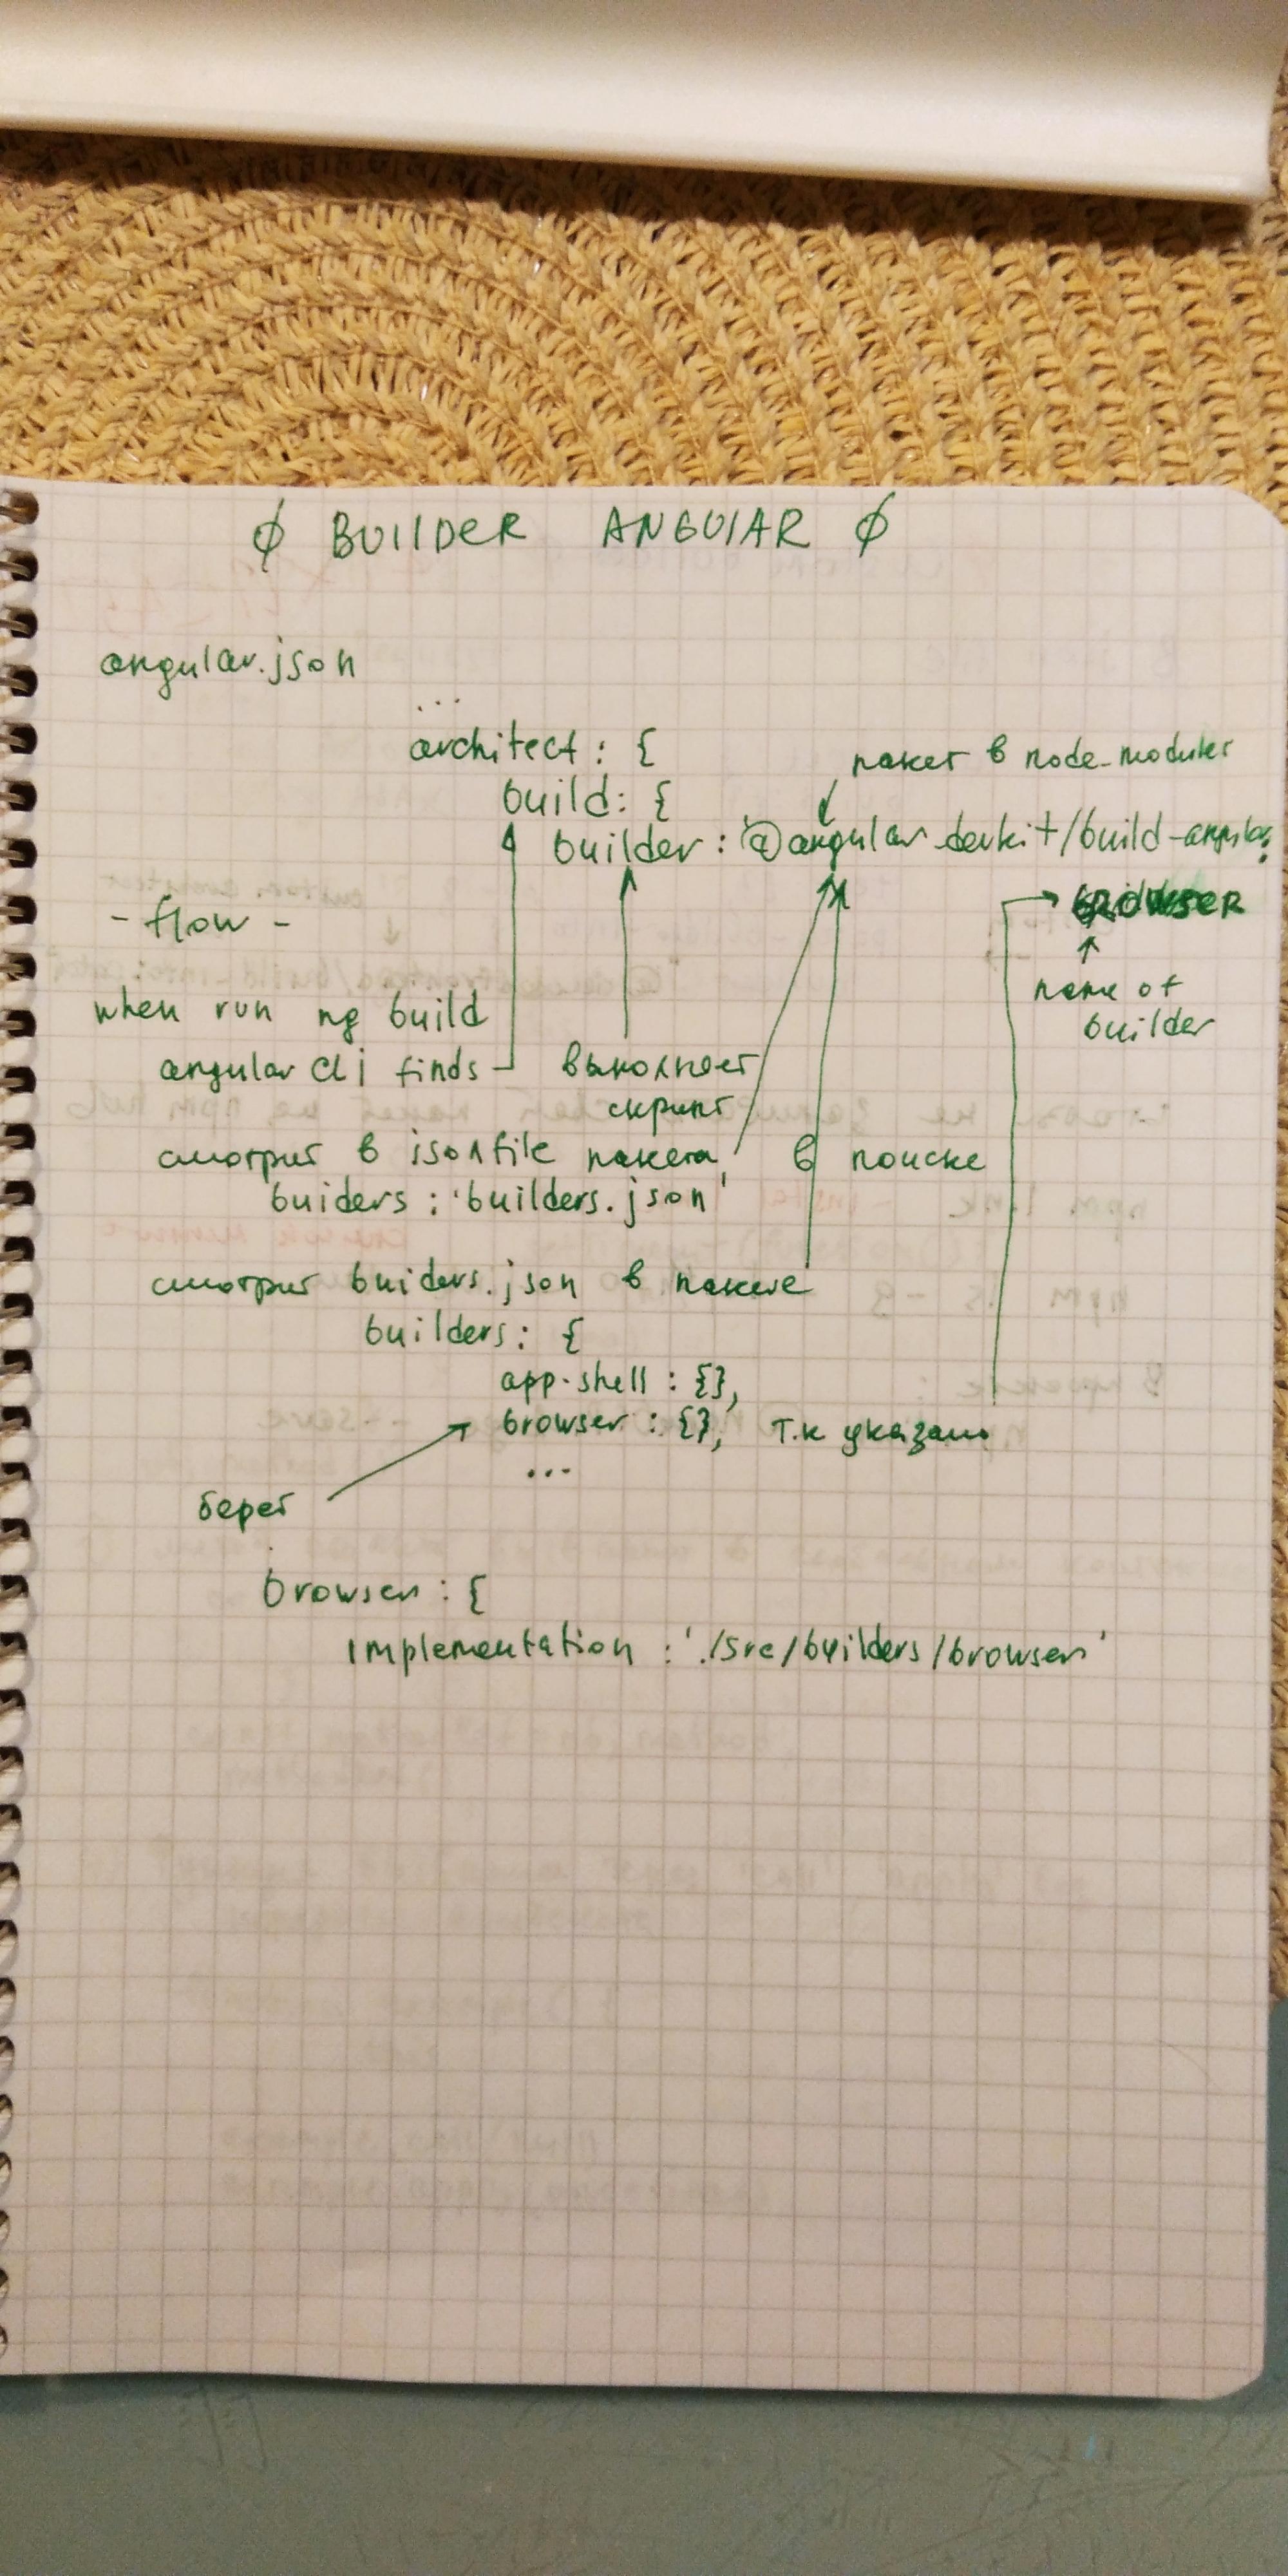 ∅ BUILDER ANGULAR ∅
angular.json
...
architect : {
пакет в node_modules
build: {
builder : '@angular_devkit/build-angular:
BROWSER
- flow -
name of
builder
when run ng build
angular cli finds
выполняет
скрипт
смотрит в json file пакета, в поиске
buiders : 'builders.json'
смотрит buiders.json в пакете
builders : {
app-shell : {},
browser : {}, т.к указано
...
берет
browser : {
implementation : './src/builders/browser'